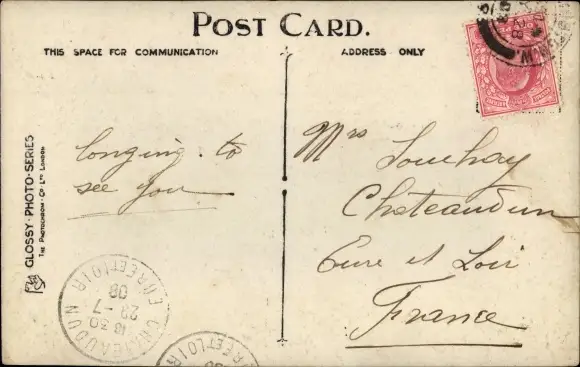 POST CARD.
THIS SPACE FOR COMMUNICATION
ADDRESS ONLY
longing to
see you
Mrs
Chateaudun
Eure et Loir
France
GLOSSY · PHOTO · SERIES
THE PHOTOCHROM · CO · LTD LONDON
CHATEAUDUN
18 30
22 - 7
08
EURE ET LOIR
EURE ET LOIR